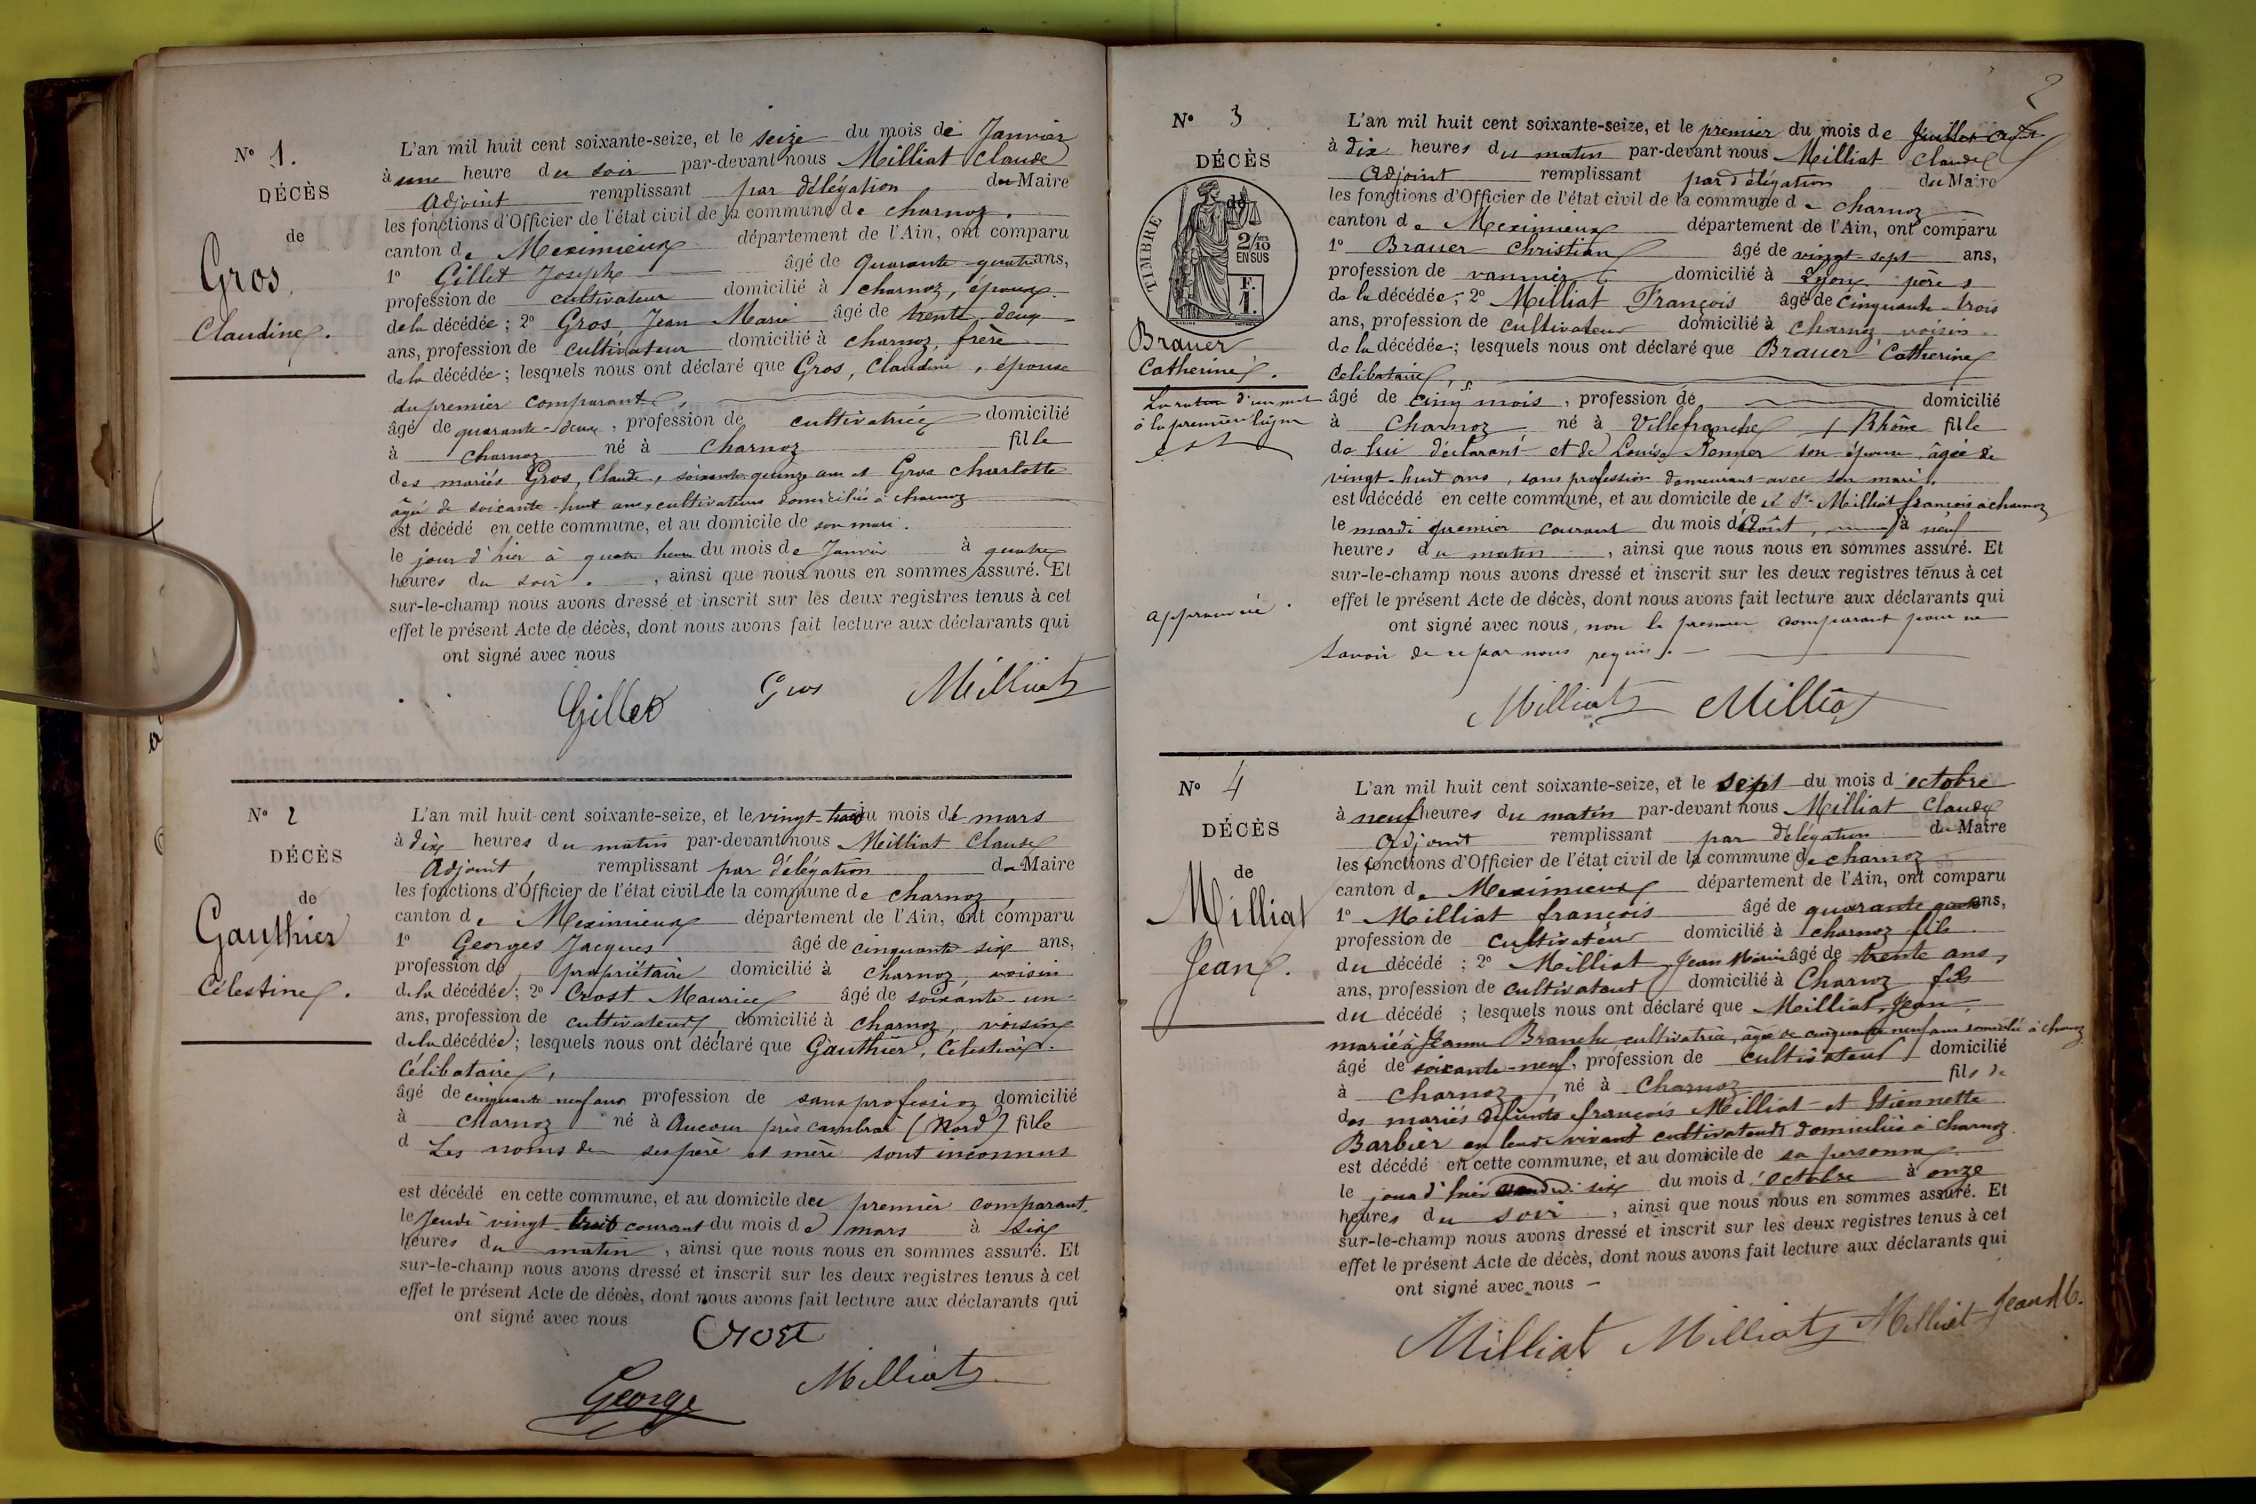 N° 1.
DÉCÈS
de
Gros
Claudine.
L'an mil huit cent soixante-seize, et le seize du mois de Janvier
à une heure du soir par-devant nous Milliat Claude
Adjoint remplissant par délégation du Maire
les fonctions d'Officier de l'état civil de la commune de charnoz.
canton de Meximieux département de l'Ain, ont comparu
1° Gillet Joseph âgé de quarante-quatre ans,
profession de cultivateur domicilié à charnoz, époux
de la décédée; 2° Gros, Jean Marie âgé de trente deux
ans, profession de cultivateur domicilié à charnoz, frère
de la décédée; lesquels nous ont déclaré que Gros, Claudine, épouse
du premier comparant,
âgé de quarante-deux, profession de cultivatrice domicilié
à charnoz né à charnoz fille
des mariés Gros, Claude, soixante quinze ans et Gros charlotte
âgé de soixante-huit ans, cultivateurs domiciliés à charnoz
est décédé en cette commune, et au domicile de son mari.
le jour d'hier à quatre heures du mois de Janvier à quatre
heures du soir., ainsi que nous nous en sommes assuré. Et
sur-le-champ nous avons dressé et inscrit sur les deux registres tenus à cet
effet le présent Acte de décès, dont nous avons fait lecture aux déclarants qui
ont signé avec nous
Gillet Gros Milliat
N° 2
DÉCÈS
de
Gauthier
Célestine.
L'an mil huit cent soixante-seize, et le vingt du mois de mars
à dix heures du matin par-devant nous Milliat Claude
Adjoint, remplissant par délégation du Maire
les fonctions d'Officier de l'état civil de la commune de charnoz
canton de Meximieux département de l'Ain, ont comparu
1° Georges Jacques âgé de cinquante-six ans,
profession de propriétaire domicilié à charnoz, voisin
de la décédée; 2° Crost Maurice âgé de soixante-un
ans, profession de cultivateur, domicilié à charnoz, voisin
de la décédée; lesquels nous ont déclaré que Gauthier, Célestine.
Célibataire,
âgé de cinquante neuf ans profession de sans profession domicilié
à charnoz né à près cambrai (Nord) fille
d Les noms de ses père et mère sont inconnus
est décédé en cette commune, et au domicile du premier comparant.
le Jeudi vingt courant du mois de mars à six
heures du matin, ainsi que nous nous en sommes assuré. Et
sur-le-champ nous avons dressé et inscrit sur les deux registres tenus à cet
effet le présent Acte de décès, dont nous avons fait lecture aux déclarants qui
ont signé avec nous
Crost
George Milliat
2
N° 3
DÉCÈS
TIMBRE
2/10 EN SUS
F. 1.
Brauer
Catherine.
La rature d'un mot
à la première ligne
est
approuvée.
L'an mil huit cent soixante-seize, et le premier du mois de Juillet Août
à dix heures du matin par-devant nous Milliat Claude
Adjoint remplissant par délégation du Maire
les fonctions d'Officier de l'état civil de la commune de charnoz
canton de Meximieux département de l'Ain, ont comparu
1° Brauer Christian âgé de vingt-sept ans,
profession de vannier domicilié à Lyon père
de la décédée; 2° Milliat François âgé de cinquante-trois
ans, profession de cultivateur domicilié à charnoz voisin
de la décédée; lesquels nous ont déclaré que Brauer Catherine
Célibataire,
âgé de cinq mois, profession de domicilié
à Charnoz né à Villefranche (Rhône fille
de lui déclarant et de Louise son épouse, âgée de
vingt-huit ans, sans profession demeurant avec son mari.
est décédé en cette commune, et au domicile de Milliat françois à charnoz
le mardi premier courant du mois d'Août, à neuf
heures du matin, ainsi que nous nous en sommes assuré. Et
sur-le-champ nous avons dressé et inscrit sur les deux registres tenus à cet
effet le présent Acte de décès, dont nous avons fait lecture aux déclarants qui
ont signé avec nous, non le premier comparant pour ne
savoir de ce par nous requis.
Milliat Milliat
N° 4
DÉCÈS
de
Milliat
Jean.
L'an mil huit cent soixante-seize, et le sept du mois d'octobre
à neuf heures du matin par-devant nous Milliat Claude
Adjoint remplissant par délégation du Maire
les fonctions d'Officier de l'état civil de la commune de charnoz
canton de Meximieux département de l'Ain, ont comparu
1° Milliat françois âgé de quarante quatre ans,
profession de cultivateur domicilié à charnoz fils
du décédé; 2° Milliat, Jean Marie âgé de trente ans,
ans, profession de cultivateur domicilié à Charnoz fils
du décédé; lesquels nous ont déclaré que Milliat, Jean,
marié à Jeanne Branche cultivatrice, âgée de cinquante neuf ans domiciliée à charnoz
âgé de soixante-neuf, profession de cultivateur, domicilié
à charnoz, né à Charnoz fils de
des mariés défunts françois Milliat et Etiennette
Barbier en leur vivant cultivateurs domiciliés à charnoz.
est décédé en cette commune, et au domicile de sa personne
le jour d'hier vendredi six du mois d'octobre à onze
heures du soir, ainsi que nous nous en sommes assuré. Et
sur-le-champ nous avons dressé et inscrit sur les deux registres tenus à cet
effet le présent Acte de décès, dont nous avons fait lecture aux déclarants qui
ont signé avec nous
Milliat Milliat Milliat Jean M.